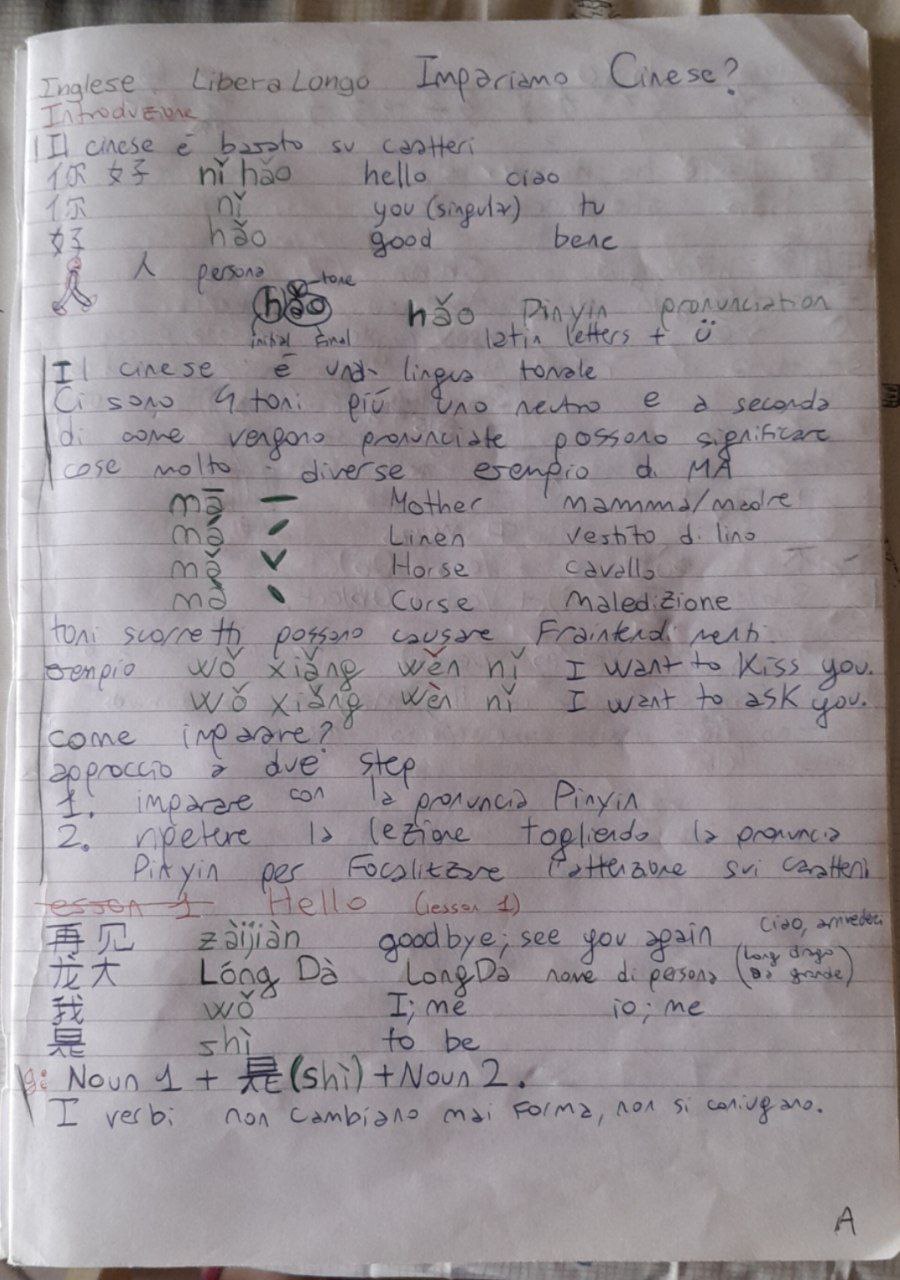 Inglese Libera Longo Impariamo Cinese?
Introduzione
Il cinese é basato su caratteri
你 好 nǐ hǎo hello ciao
你 nǐ you (singular) tu
好 hǎo good bene
人 persona
tone
hǎo hǎo Pinyin pronunciation
initial final latin letters + ü
Il cinese é una lingua tonale
Ci sono 4 toni piú uno neutro e a seconda
di come vengono pronunciate possono significare
cose molto diverse esempio di MA
mā Mother mamma/madre
má Linen vestito di lino
mǎ Horse cavallo
mà Curse Maledizione
toni scorretti possono causare Fraintendimenti
esempio wǒ xiǎng wěn nǐ I want to kiss you.
wǒ xiǎng wèn nǐ I want to ask you.
come imparare?
approccio a due step
1. imparare con la pronuncia Pinyin
2. ripetere la lezione togliendo la pronuncia
Pinyin per Focalizzare l'attenzione sui caratteri
esson 1 Hello (lesson 1)
再 见 zàijiàn goodbye; see you again ciao, arrivederci
龙 大 Lóng Dà LongDa nome di persona (Long drago
Da grande)
我 wǒ I; me io; me
是 shì to be
g: Noun 1 + 是 (shì) + Noun 2.
I verbi non cambiano mai forma, non si coniugano.
A